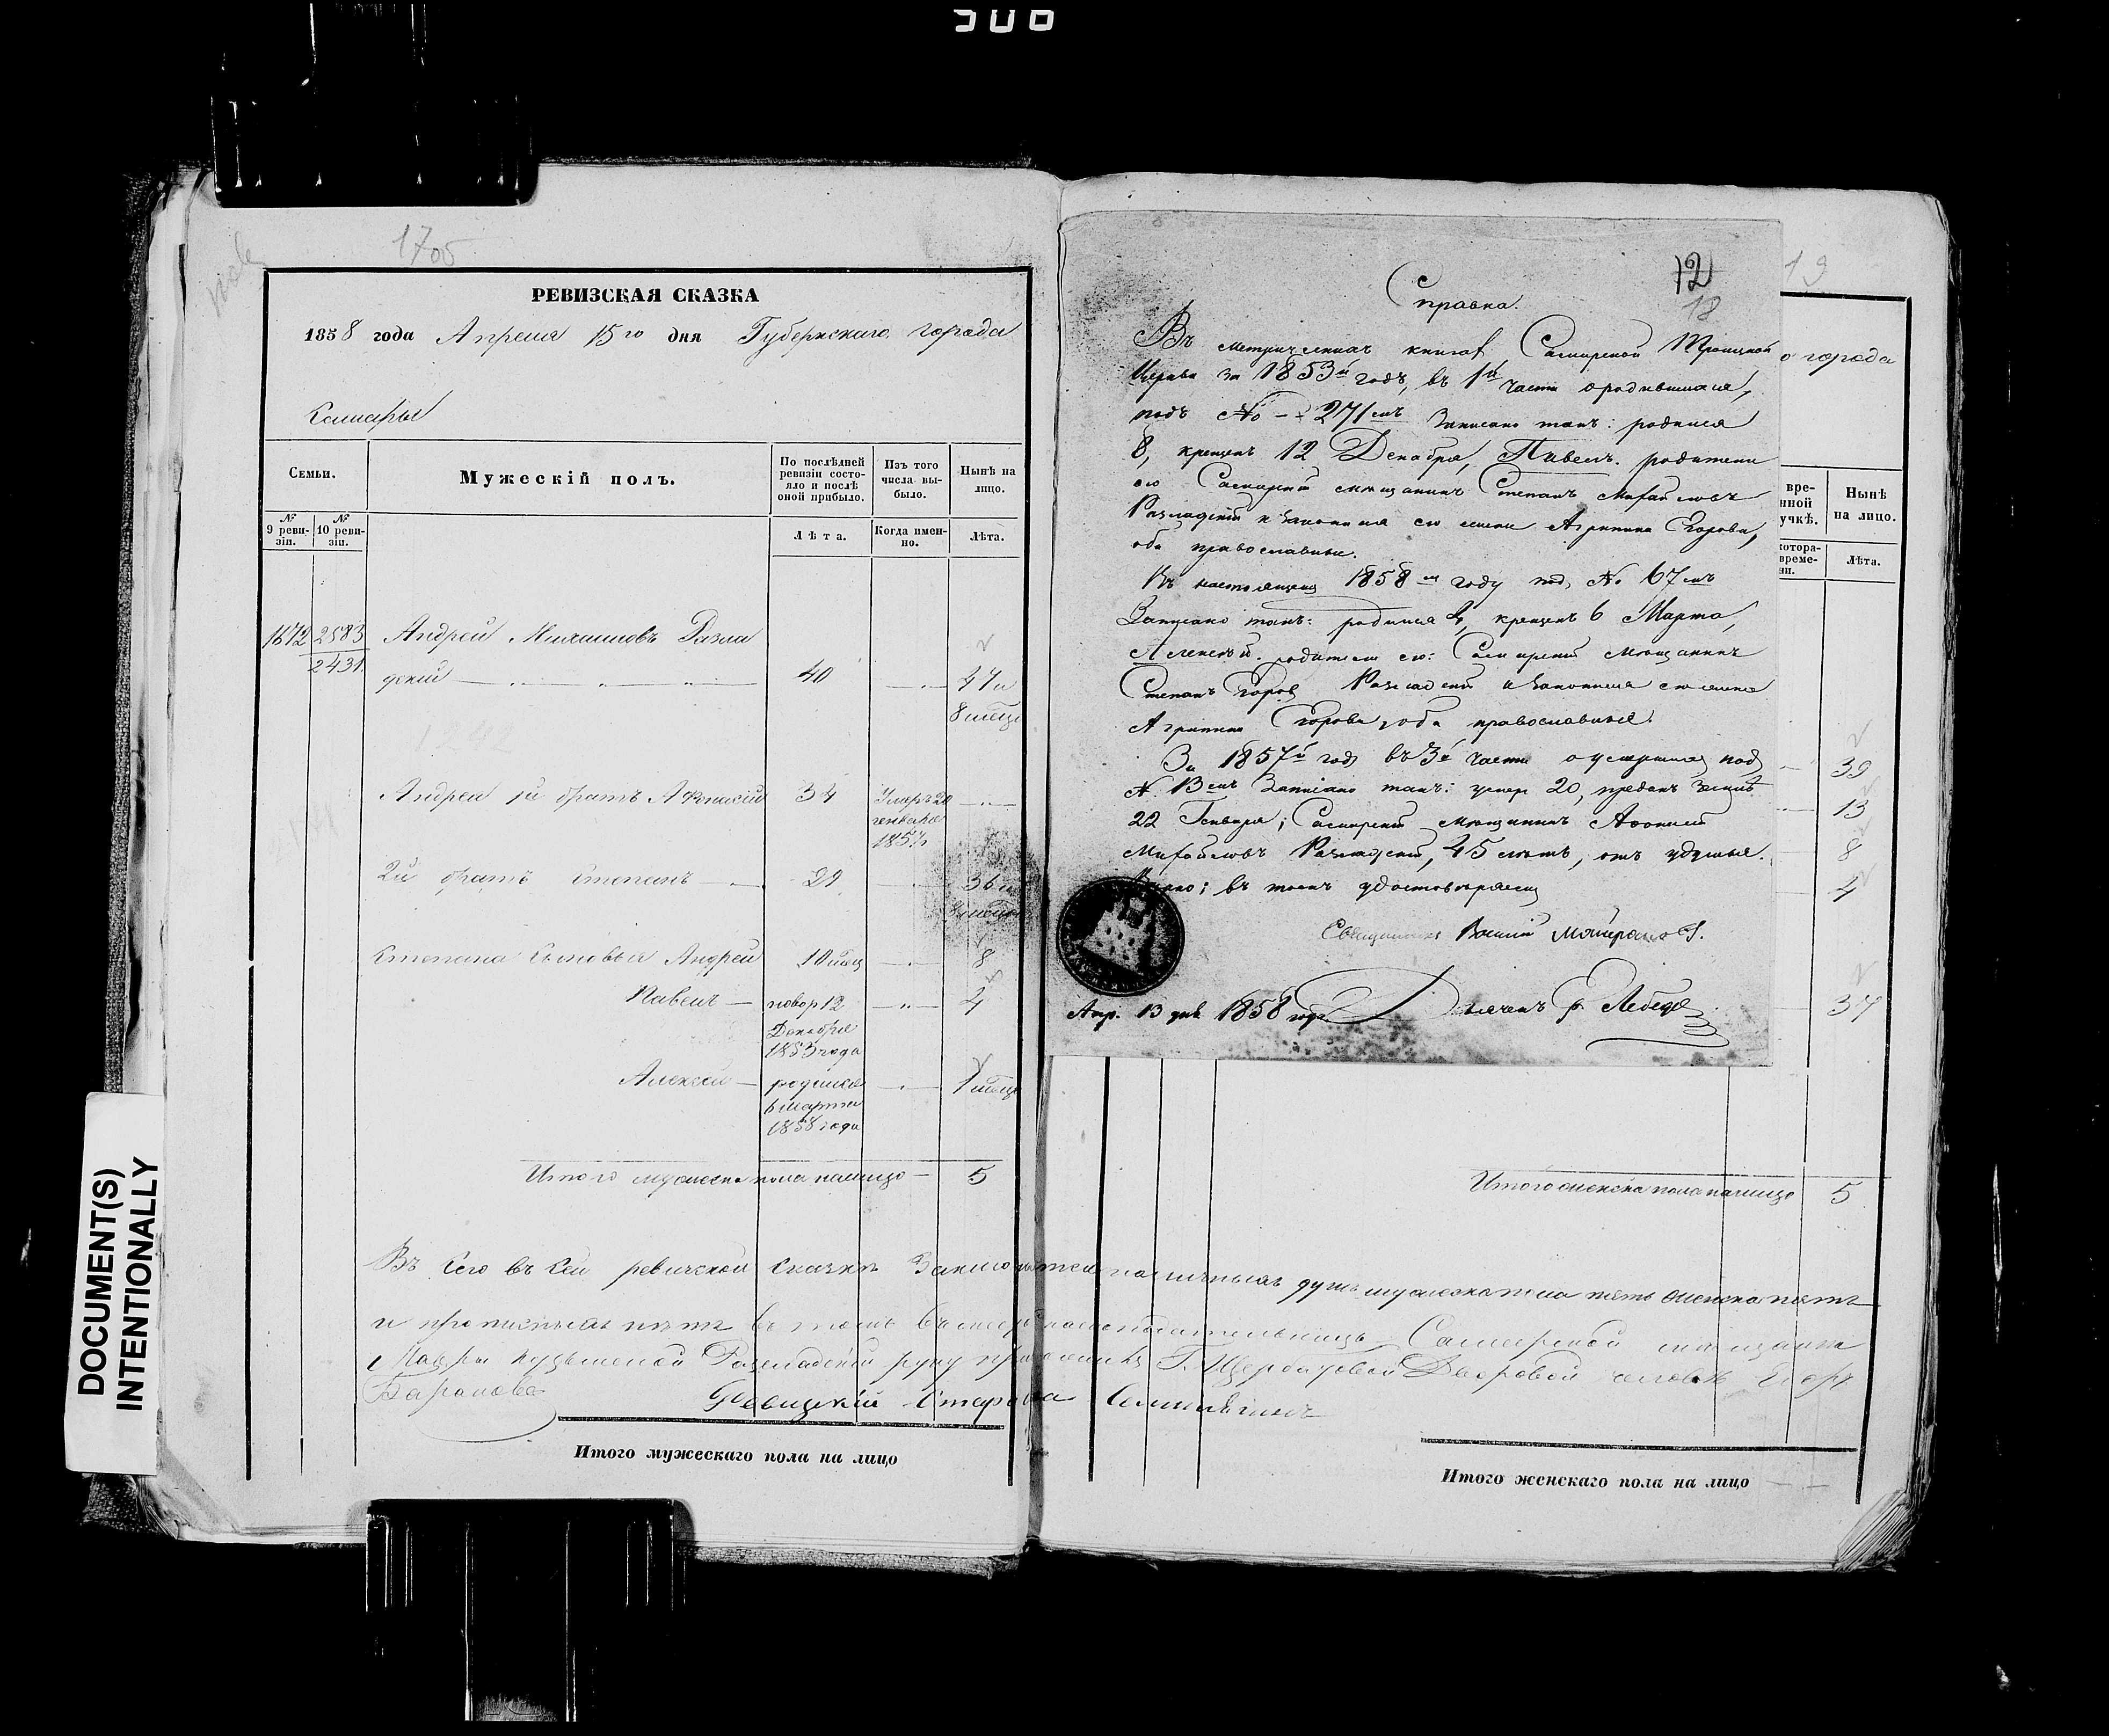 306
1700
РЕВИЗСКАЯ СКАЗКА
1858 года Апреля 15го дня Губернскаго города
Самары
Семьи.
Мужескій полъ.
По послѣдней ревизіи состояло и послѣ оной прибыло.
Изъ того числа выбыло.
Нынѣ на лицо.
№ 9 ревизіи.
№ 10 ревизіи.
Лѣта.
Когда именно.
Лѣта.
1672 2583 Андрей Михаиловъ Разла
2431 дскій 40 47 и
8 мѣсц
Андрея 1й братъ Афонасій 34 Умеръ 20
генваря
1857
2й братъ Степанъ 29 36 и
Степана сыновья Андрей 10 мѣсц 8
Павелъ новор 12 4
Декабря
1853 года
Алексей родился 1 мѣсц
6 марта
1858 года
Итого мужеска пола налицо 5
Въ сей ревизской сказкѣ Заключается наличныхъ душъ мужеска пола пять женска пять
и прописныхъ нѣтъ въ томъ Самарской мѣщанки
Мавры Разладской руку приложилъ Г. Дворовой человѣкъ Егоръ
Барановъ
Ревизскій Староста
Итого мужескаго пола на лицо
12
18
Справка.
Въ метрическихъ книгахъ Самарской Троицкой
Церкви за 1853й годъ, въ 1й части о родившихся,
подъ № 271мъ Записано такъ: родился
8, крещенъ 12 Декабря, Павелъ. родители
его Самарскій мѣщанинъ Степанъ Михайловъ
Разладскій и законная его жена Агрипина Егорова,
оба православные.
Въ настоящемъ 1858м году под № 67мъ
Записано такъ: родился 4, крещенъ 6 Марта,
Алексѣй. родители его: Самарскій мѣщанинъ
Степанъ Егоров Разладскій и Законная его жена
Агрипина Егорова, оба православные.
За 1857й годъ въ 3й части о умершихъ под
№ 13мъ Записано такъ: умер 20, преданъ Землѣ
22 Генваря; Самарскій мѣщанинъ Афонасій
Михайловъ Разладскій, 45 лѣтъ, отъ удушья.
Вѣрно; въ томъ удостовѣряемъ
Священникъ
Апр. 13 дня 1858 года Дьяченъ Ф. Лебедев
19
о города
вре-
нной
учкѣ.
Нынѣ
на лицо.
котора-
време-
ни.
Лѣта.
39
13
8
4
34
Итого женска пола налицо 5
Итого женскаго пола на лицо
DOCUMENT(S)
INTENTIONALLY